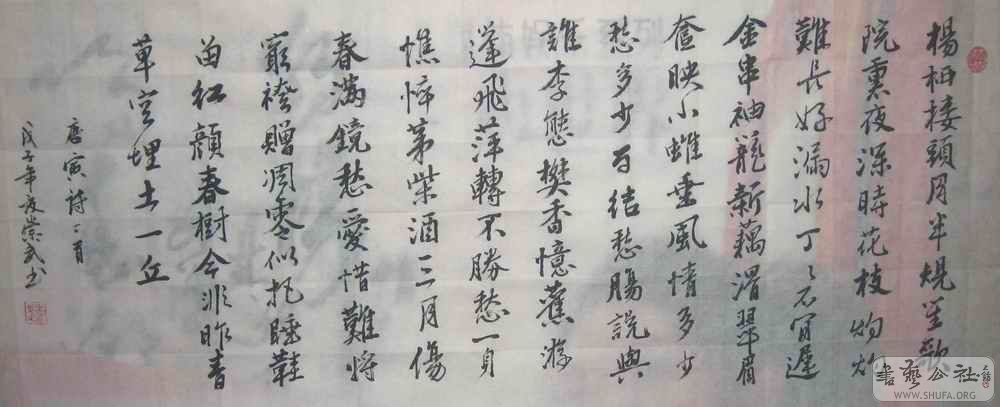 楊柳樓頭月半規笙歌
院裏夜深時花枝灼灼
難長好漏水丁々不肯遲
金串袖籠新藕滑翠眉
奩映小蛾垂風情多少
愁多少百結愁腸說與
誰李態樊香憶舊游
蓬飛萍轉不勝愁一身
憔悴茅柴酒三月傷
春滿鏡愁愛惜難將
窮袴贈凋零似把睡鞋
留紅顏春樹今非昨青
草空埋土一丘
唐寅詩二首
戊子年崇武书
書藝公社
WWW.SHUFA.ORG